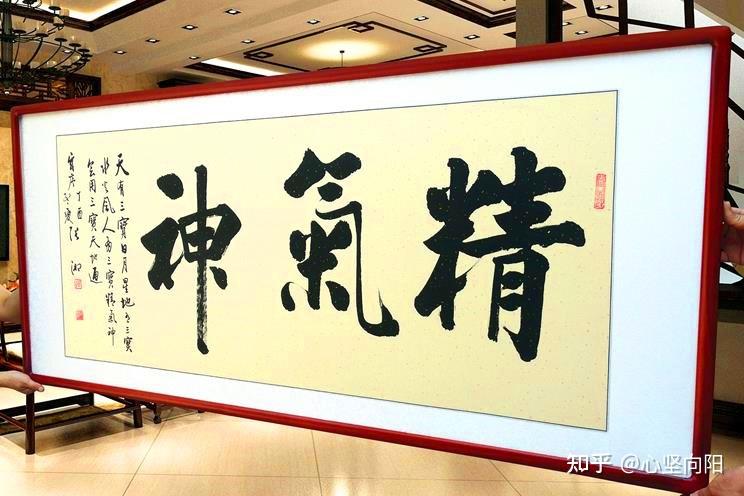 精氣神
天有三寶日月星地有三寶
水火風人有三寶精氣神
善用三寶天地通
丁酉
知乎 @心坚向阳